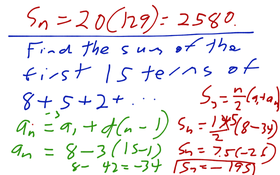 Sn = 20(129) = 2580.
Find the sum of the
first 15 terms of
8 + 5 + 2 + ...
Sn = n/2 (a1 + an)
an = a1 + d(n - 1)
Sn = 15/2 (8 - 34)
an = 8 - 3(15 - 1)
Sn = 7.5(-26)
8 - 42 = -34
Sn = -195